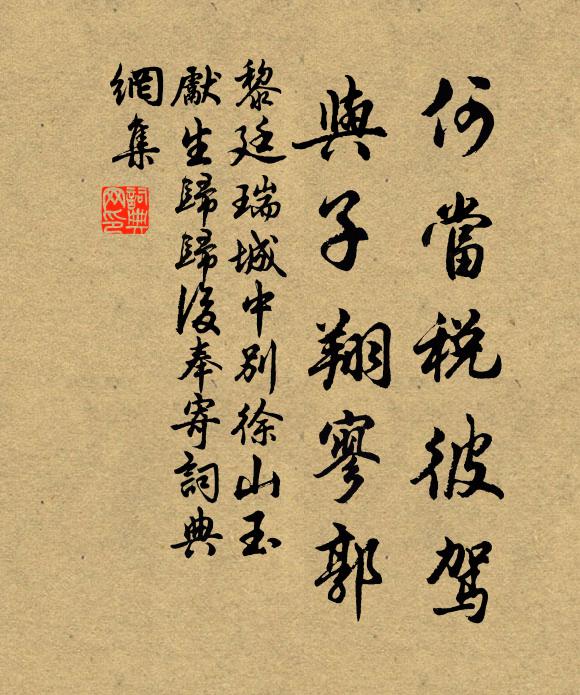 何當税彼駕
與子翔寥郭
黎廷瑞城中別徐山玉
獻生歸歸後奉寄詞典
網集
詞典網印